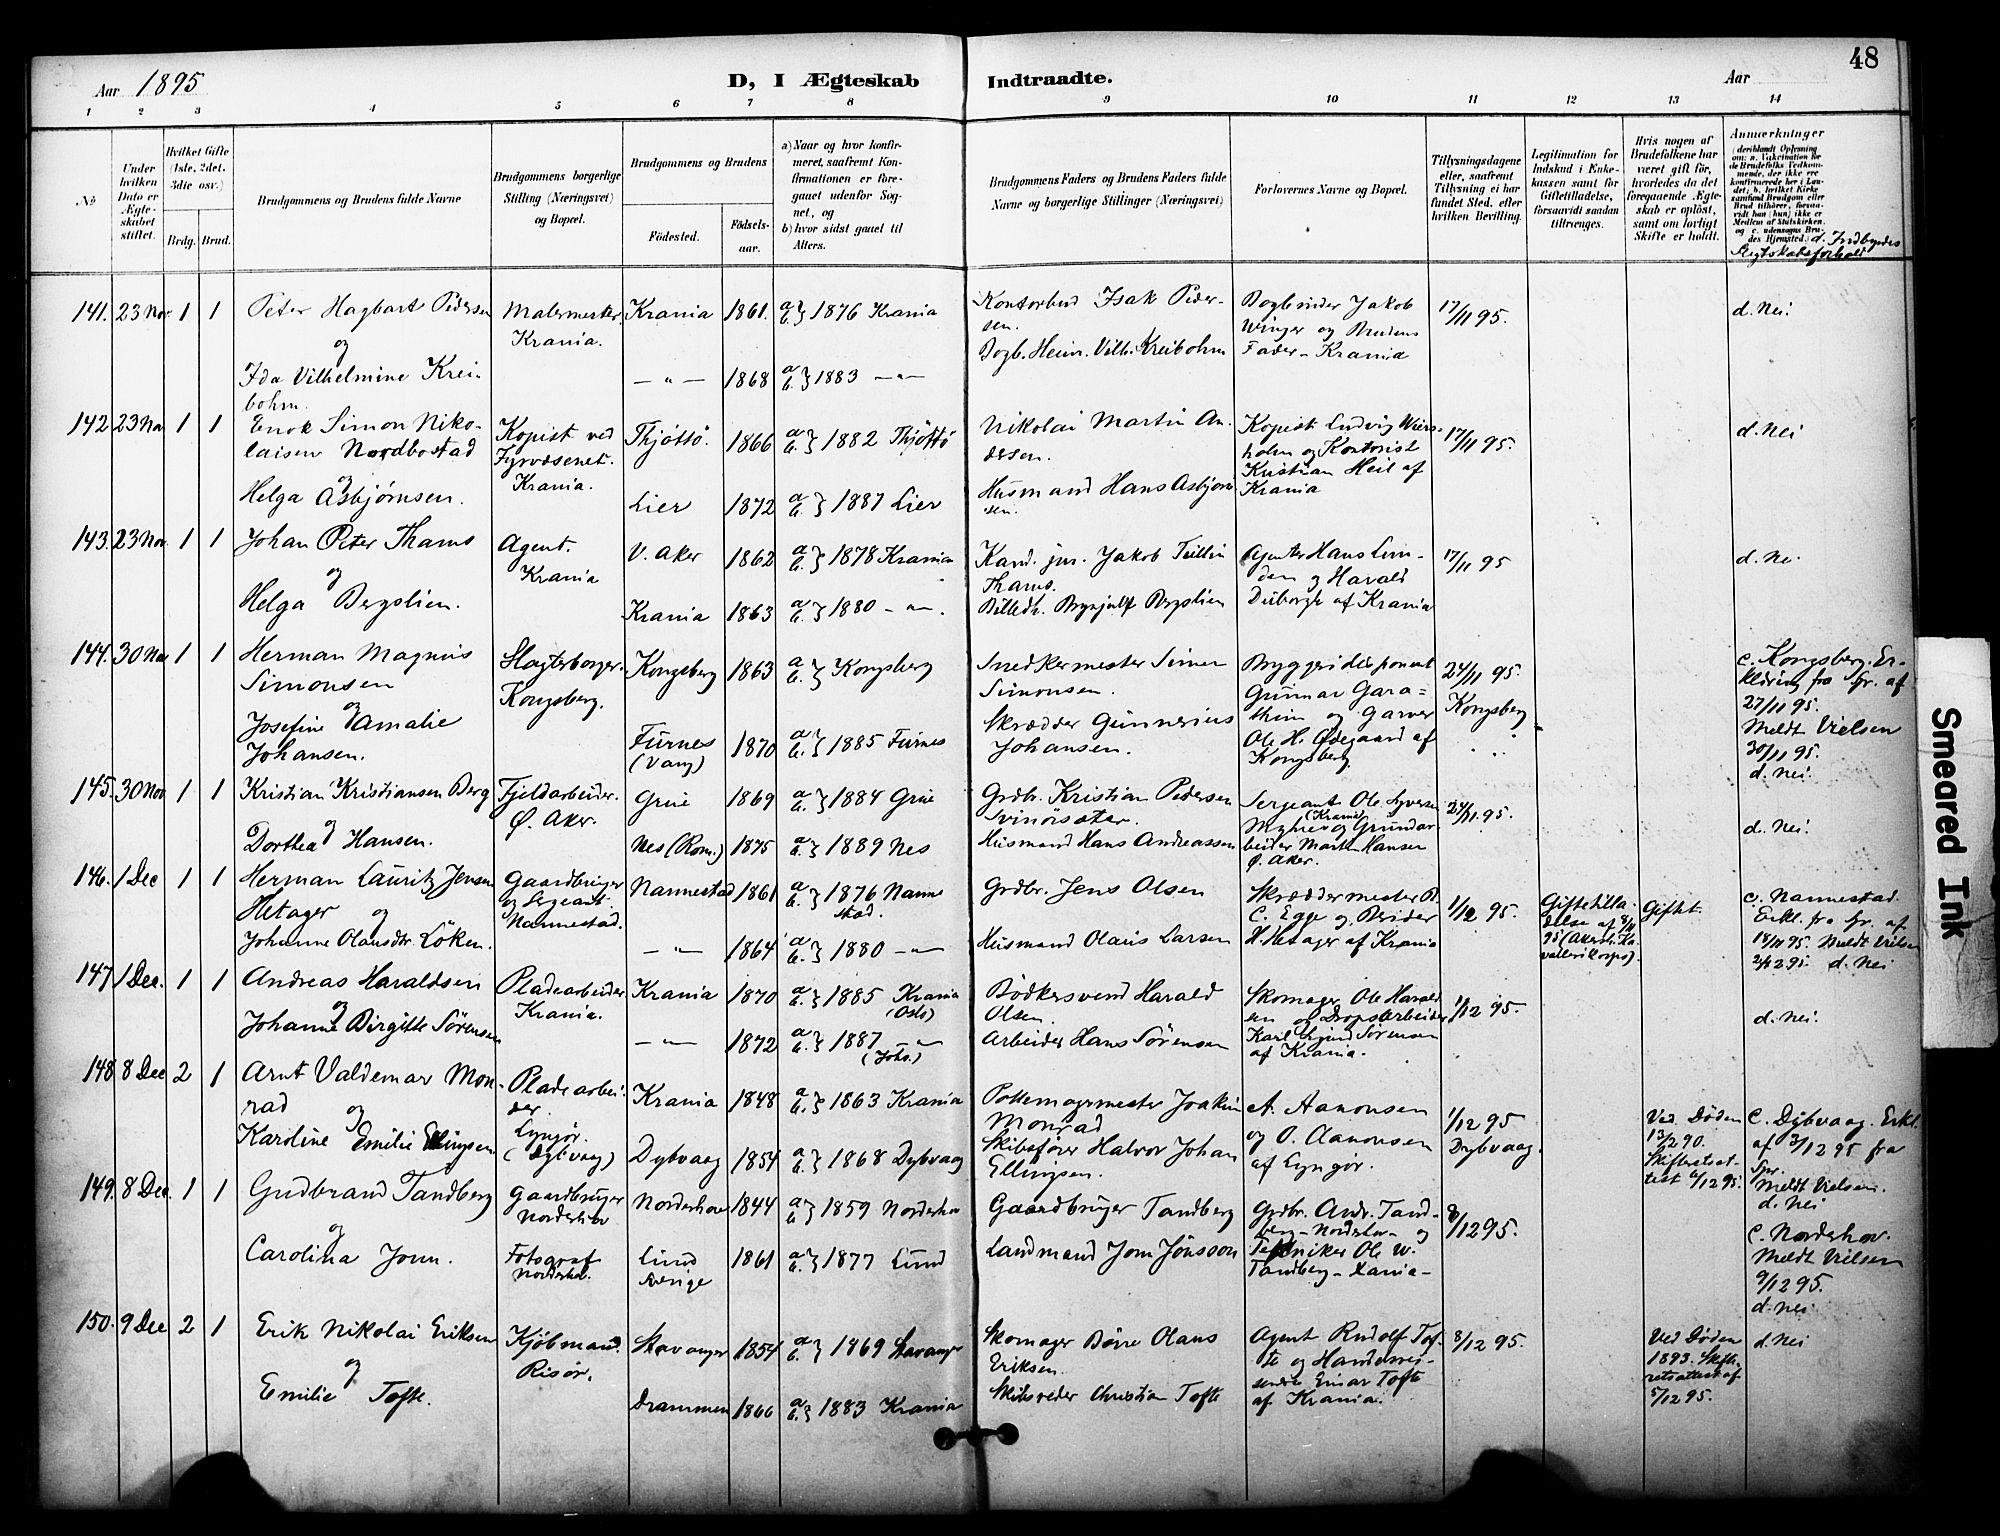 48
Aar 1895
D, I Ægteskab Indtraadte.
Aar
1 2 3 4 5 6 7 8 9 10 11 12 13 14
No
Under hvilken Dato er Ægteskabet stiftet.
Hvilket Gifte (1ste, 2det, 3die osv.)
Brdg. Brud.
Brudgommens og Brudens fulde Navne
Brudgommens borgerlige Stilling (Næringsvei) og Bopæl.
Brudgommens og Brudens
Födested. Födselsaar.
a) Naar og hvor konfirmeret, saafremt Konfirmationen er foregaaet udenfor Sognet, og
b) hvor sidst gaaet til Alters.
Brudgommens Faders og Brudens Faders fulde Navne og borgerlige Stillinger (Næringsvei)
Forlovernes Navne og Bopæl.
Tillysningsdagene eller, saafremt Tillysning ei har fundet Sted, efter hvilken Bevilling.
Legitimation for Indskud i Enkekassen samt for Giftetilladelse, forsaavidt saadan tiltrænges.
Hvis nogen af Brudefolkene har været gift för, hvorledes da det foregaaende Ægteskab er oplöst, samt om lovligt Skifte er holdt.
Anmærkninger (deriblandt Oplysning om: a. Vakcination for de Brudefolks Vedkommende, der ikke ere konfirmerede her i Landet; b. hvilket Kirkesamfund Brudgom eller Brud tilhörer, forsaavidt han (hun) ikke er Medlem af Statskirken, og c. udensogns Brudes Hjemsted.) d. Indbyrdes Slegtskabsforhold
141. 23 Nov 1 1 Peter Hagbart Pedersen Malermester. Krania 1861. a b } 1876 Krania Kontorbud Isak Peder- Bogbinder Jakob 17/11 95. d. Nei.
og Krania. sen. Winger og Brudens
Ida Vilhelmine Krei- — " — 1868 a b } 1883 — " — Bogb. Heinr. Vilh. Kreibohm Fader - Krania
bohm.
142 23 Nov 1 1 Enok Simon Niko- Kopist ved Thjöttö. 1866 a b } 1882 Thjöttö Nikolai Martin An- Kopist Ludvig Wiers- 17/11 95. d. Nei
laisen Nordbostad Fyrvæsenet. dersen. holm og Kontorist
og Krania. Kristian Heil af
Helga Asbjørnsen. Lier 1872 a b } 1887 Lier Husmand Hans Asbjørn- Krania
sen.
143. 23 Nov 1 1 Johan Peter Thams Agent. V. Aker 1862 a b } 1878 Krania Kand. jur. Jakob Tullin Agenter Hans Lin- 17/11 95 d. Nei
og Krania Thams. den og Harald
Helga Bergslien. Krania 1863 a b } 1880 — " — Billedh. Brynjulf Bergslien Duborgh af Krania
144. 30 Nov 1 1 Herman Magnus Slagterborger. Kongsberg 1863 a b } Kongsberg Snedkermester Simen Bryggeridisponent 24/11 95. c. Kongsberg. Er-
Simonsen Kongsberg. Simonsen. Gunnar Gara- Kongsberg klæring fra Spr. af
og thun og Garver 27/11 95.
Josefine Amalie Furnes 1870 a b } 1885 Furnes Skrædder Gunnerius Ole H. Ødegaard af Meldt Vielsen
Johansen. (Vang) Johansen. Kongsberg 30/11 95.
d. Nei.
145. 30 Nov 1 1 Kristian Kristiansen Berg Fjeldarbeider. Grue 1869 a b } 1884 Grue Grdbr. Kristian Pedersen Sergeant Ole Syversen 24/11 95. d. Nei.
og Ø. Aker. Svinosæter. (Krania) Myhre og Grundar-
Dorthea Hansen. Nes (Rom.) 1875 a b } 1889 Nes Husmand Hans Andreassen beider Martin Hansen
Ø. Aker.
146. 1 Dec 1 1 Herman Lauritz Jensen Gaardbruger Nannestad 1861 a b } 1876 Nanne Grdbr. Jens Olsen Skræddermester B. 1/12 95. Giftetilla- Giftet. c. Nannestad.
Hetager og og Sergeant. stad. C. Egge og Berider delse af Erkl. fra Spr. af
Johanne Olausdtr Löken. Nannestad. — " — 1864 a b } 1880 — " — Husmand Olaus Larsen H. Hetager af Krania 95 (Akersh. Ka- 18/11 95. Meldt Vielsen
vallerikorps). 2/12 95. d. Nei
147. 1 Dec. 1 1 Andreas Haraldsen Pladearbeider Krania 1870 a b } 1885 Krania (Oslo) Bödkersvend Harald Skomager Ole Harald- 1/12 95.
og Krania. Olsen. sen og Dropsarbeider d. Nei.
Johanne Birgitte Sörensen — " — 1872 a b } 1887 — " — (Johs.) Arbeider Hans Sörensen Karl Sörensen
af Krania.
148 8 Dec 2 1 Arnt Valdemar Mon- Pladearbei- Krania 1848 a b } 1863 Krania Pottemagermester Joakim A. Aanonsen 1/12 95 Ved Døden c. Dybvaag. Erkl.
rad og der. Monrad og O. Aanonsen Dybvaag. 13/2 90. af 3/12 95 fra
Karoline Emilie Ellingsen Lyngör. (Dybvaag) Dybvaag 1854 a b } 1868 Dybvaag Skibsfører Halvor Johan af Lyngør. Skifteretsat- Spr.
Ellingsen. test 6/12 95. Meldt Vielsen.
d. Nei
149. 8 Dec. 1 1 Gudbrand Tandberg Gaardbruger Norderhov 1844 a b } 1859 Norderhov Gaardbruger Tandberg Grdbr. Andr. Tand- 8/12 95. c. Norderhov.
og Norderhov berg - Norderhov - og Meldt Vielsen
Carolina Jonn. Fotograf Lund 1861 a b } 1877 Lund Landmand Jom Jönsson Tekniker Ole W. 9/12 95.
Norderhov. Sverige Tandberg - Krania - d. Nei
150. 9 Dec 2 1 Erik Nikolai Eriksen Kjöbmand. Stavanger 1854 a b } 1869 Stavanger Skomager Börre Olaus Agent Rudolf Tof- 8/12 95. Ved Døden d. Nei
og Risör. Eriksen. te og Handelsrei- 1893. Skifte-
Emilie Tofte. Drammen 1866 a b } 1883 Krania Skibsreder Christian Tofte sende Einar Tofte retsattest af
af Krania. 5/12 95.
Smeared Ink